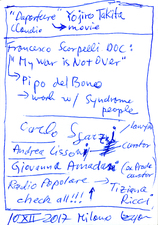 "Departure" Yojiro Takita
Claudio → movie
Francesco Scarpelli DOC:
"My war is Not Over"
→ Pipo del Bono
→ work w/ Syndrome
people
Carlo
Andrea Lissoni curator
Giovanna Amadasi
Radio Popolare → Tiziana
check all!!! Ricci
10 XII 2017 Milano